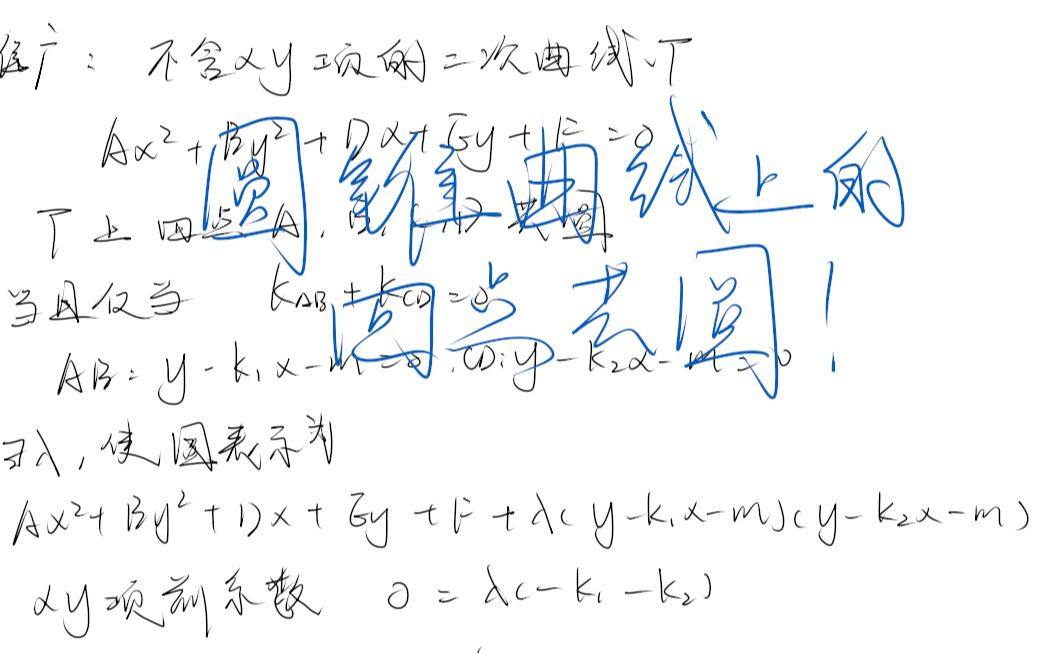 推广：不含xy项的二次曲线Γ
Ax²+By²+Dx+Ey+F=0
Γ上四点A,B,C,D共圆
当且仅当 k_AB+k_CD=0
AB:y-k₁x-m=0,CD:y-k₂x-m=0
∃λ,使圆表示为
Ax²+By²+Dx+Ey+F+λ(y-k₁x-m)(y-k₂x-m)
xy项前系数 0=λ(-k₁-k₂)
圆锥曲线上的
四点共圆!